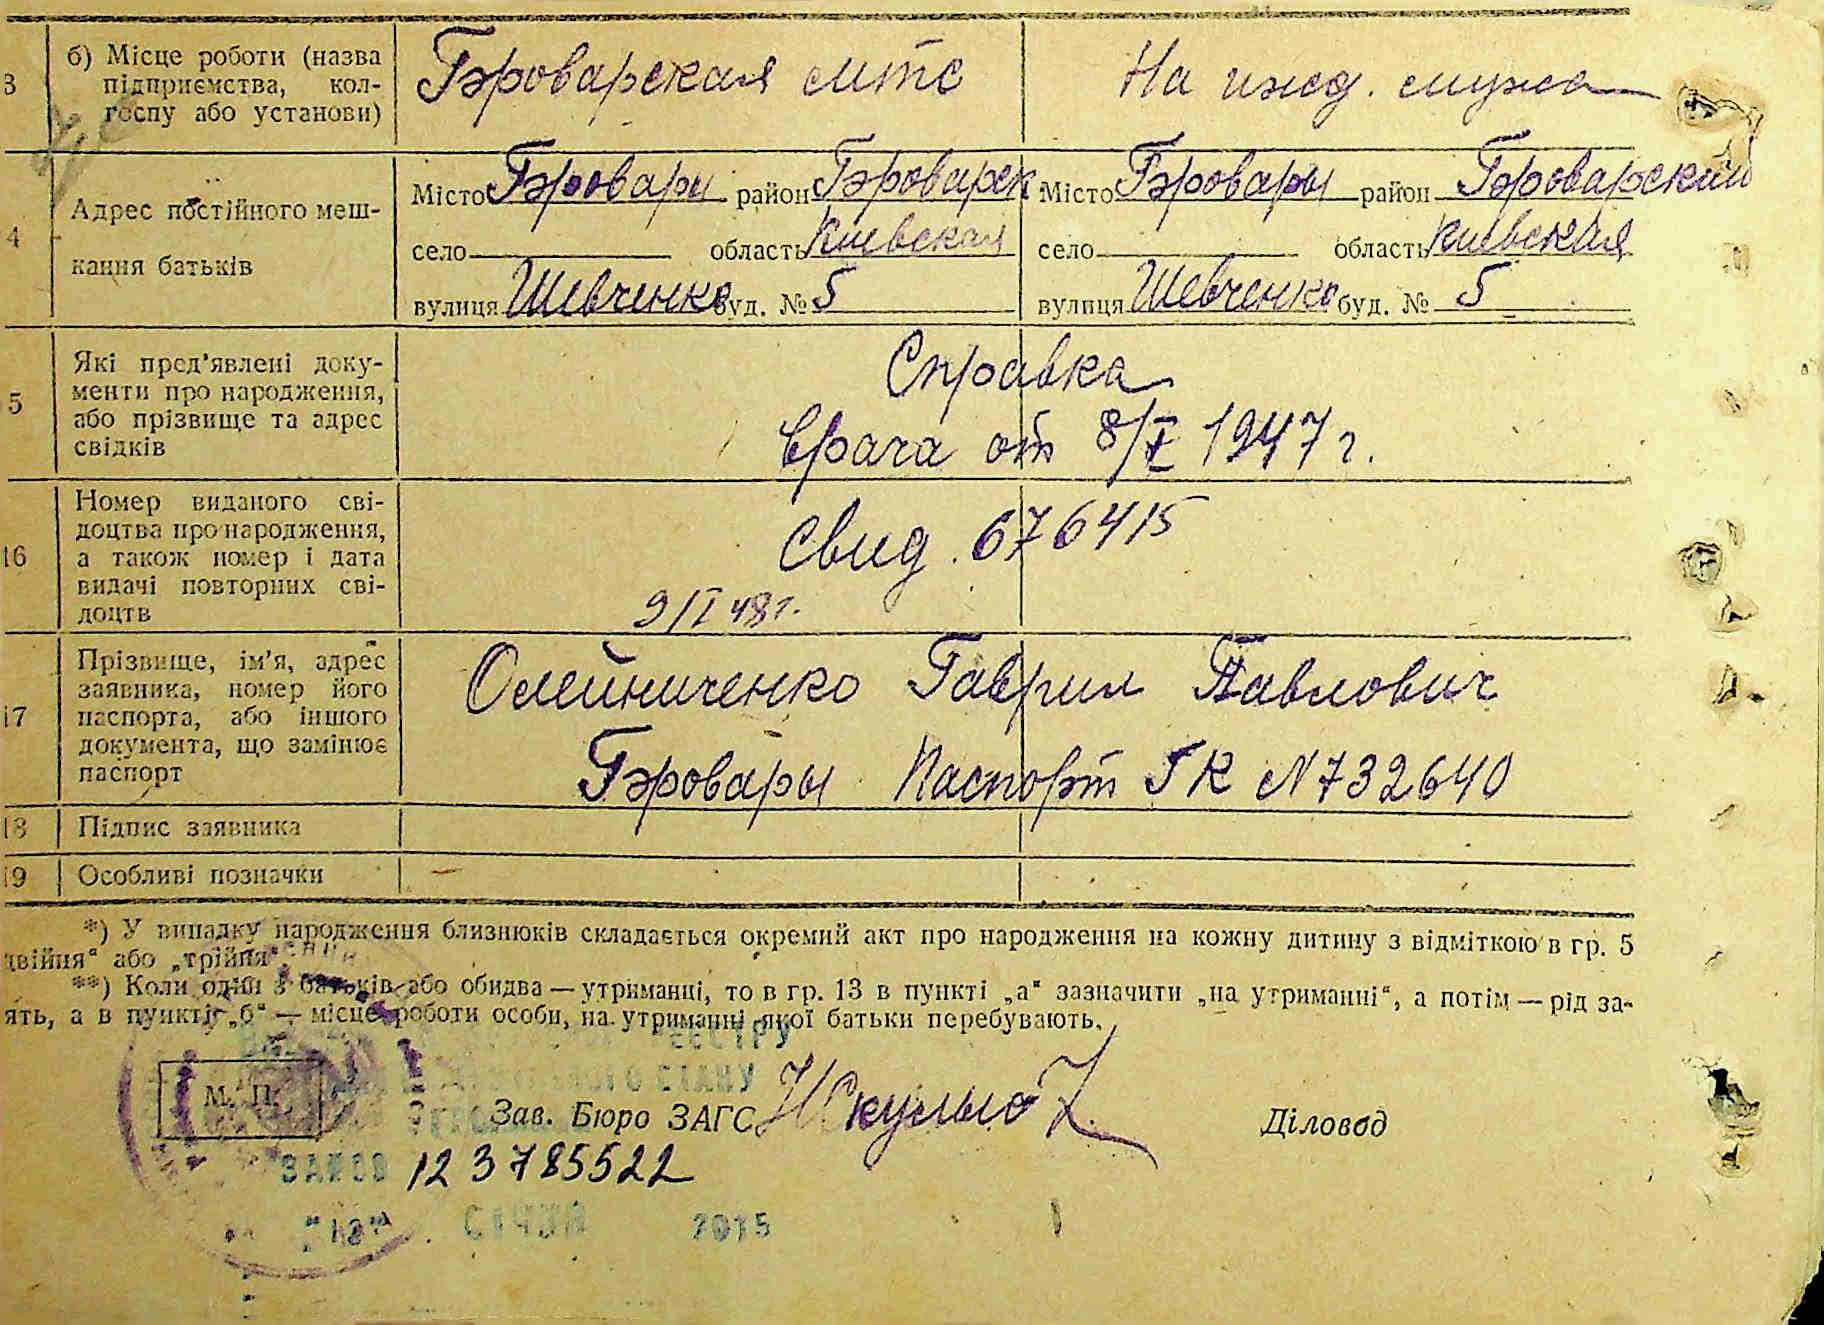 3
б) Місце роботи (назва
підприємства, кол-
госпу або установи)
Броварская мтс
На ижд. мужа
4
Адрес постійного меш-
кання батьків
Місто Бровары районБроварск
село область Киевская
вулиця Шевченко буд. № 5
Місто Бровары район Броварский
село область Киевская
вулиця Шевченко буд. № 5
5
Які пред'явлені доку-
менти про народження,
або прізвище та адрес
свідків
Справка
врача от 8/X 1947 г.
16
Номер виданого сві-
доцтва про народження,
а також номер і дата
видачі повторних сві-
доцтв
свид. 676415
9/I 48 г.
17
Прізвище, ім'я, адрес
заявника, номер його
паспорта, або іншого
документа, що замінює
паспорт
Олейниченко Гаврил Павлович
Бровары Паспорт ГК N 732640
18
Підпис заявника
19
Особливі позначки
*) У випадку народження близнюків складається окремий акт про народження на кожну дитину з відміткою в гр. 5
двійня" або „трійня".
**) Коли один з батьків або обидва — утриманці, то в гр. 13 в пункті „а" зазначити „на утриманні", а потім — рід за-
ять, а в пункті „б" — місце роботи особи, на утриманні якої батьки перебувають.
РЕЄСТРУ
СТАНУ
М. П.
Зав. Бюро ЗАГС
Діловод
123785522
СІЧНЯ 2015